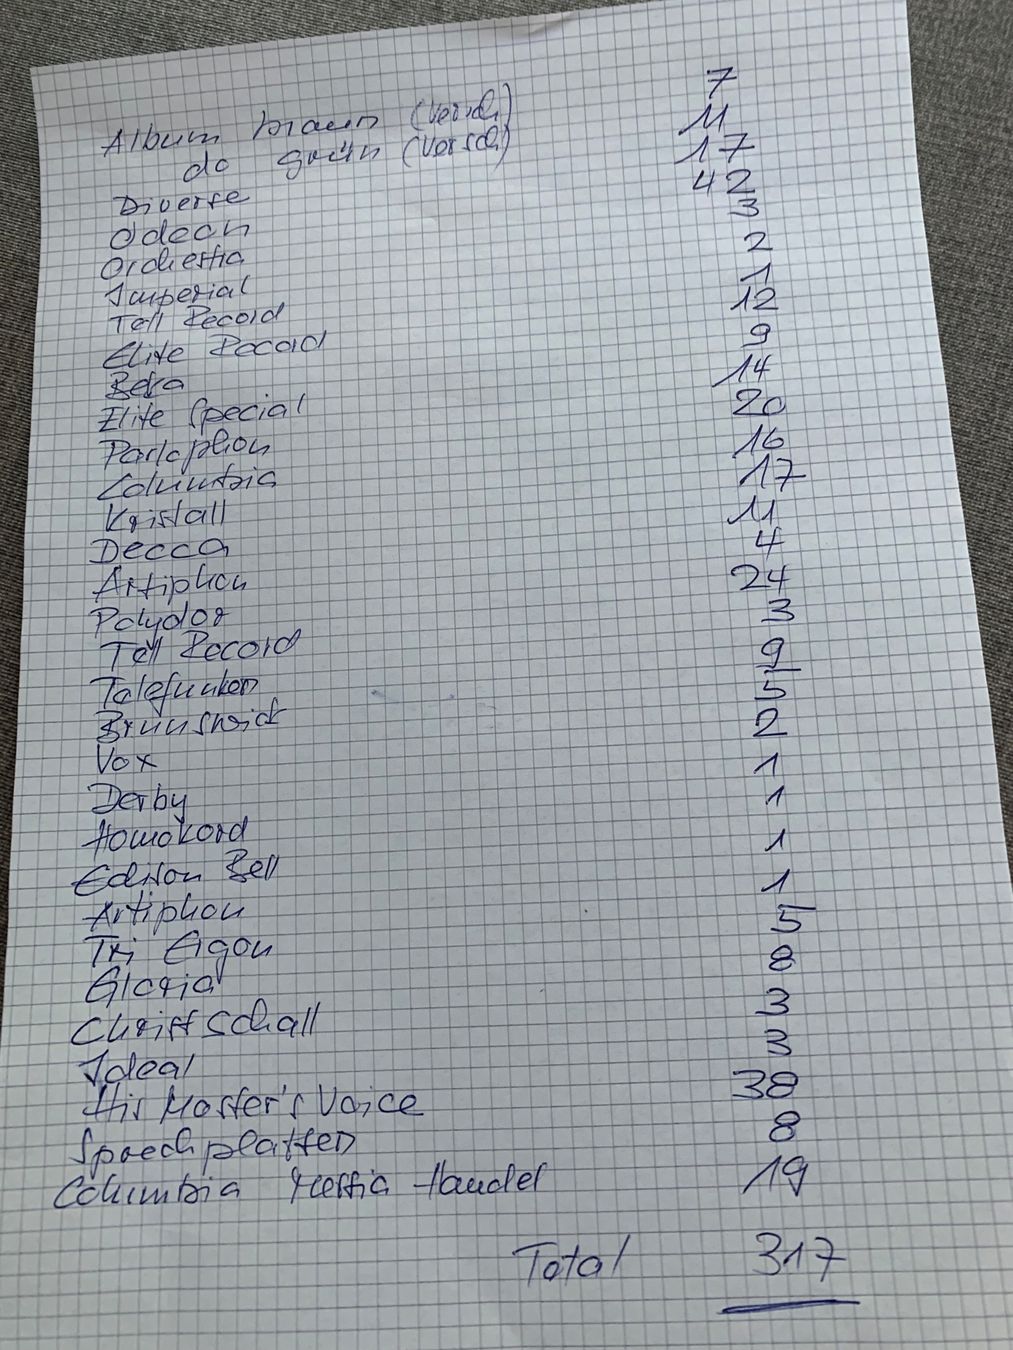 Album braun (Versch) 7
do grün (Versch) 11
Diverse 17
Odeon 42
Orchestra 3
Imperial 2
Tell Record 1
Elite Record 12
Beka 9
Elite Special 14
Parlophon 20
Columbia 16
Kristall 17
Decca 11
Artiphon 4
Polydor 24
Tell Record 3
Telefunken 9
Brunswick 5
Vox 2
Derby 1
Homokord 1
Edison Bell 1
Artiphon 1
Tri Ergon 5
Gloria 8
Christschall 3
Ideal 3
His Master's Voice 38
Sprechplatten 8
Columbia Messia Handel 19
Total 317